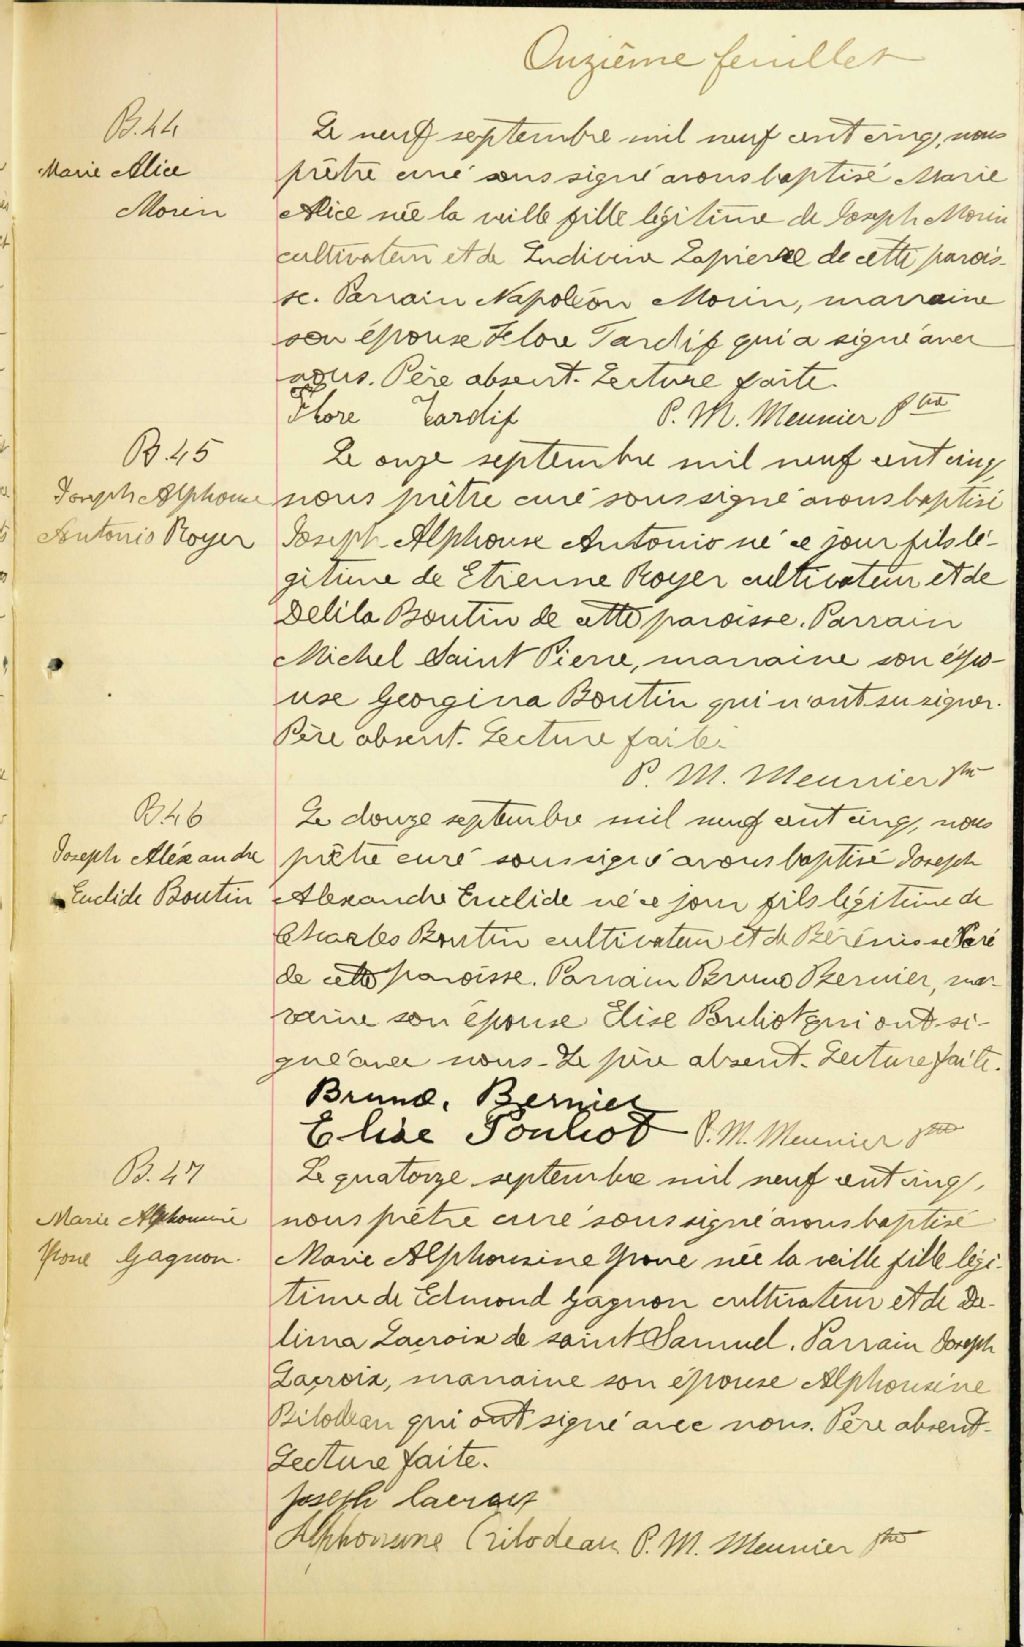 Onzième feuillet
B.44
Marie Alice
Morin
Le neuf septembre mil neuf cent cinq, nous
prêtre curé soussigné avons baptisé Marie
Alice née la veille fille légitime de Joseph Morin
cultivateur et de Ludivine Lapierre de cette parois-
se. Parrain Napoléon Morin, marraine
son épouse Flore Tardif qui a signé avec
nous. Père absent. Lecture faite.
Flore Tardif P. M. Meunier Ptre
B.45
Joseph Alphonse
Antonio Royer
Le onze septembre mil neuf cent cinq
nous prêtre curé soussigné avons baptisé
Joseph Alphonse Antonio né ce jour fils lé-
gitime de Etienne Royer cultivateur et de
Delila Boutin de cette paroisse. Parrain
Michel Saint Pierre, marraine son épo-
use Georgina Boutin qui n'ont su signer.
Père absent. Lecture faite.
P. M. Meunier ptre
B.46
Joseph Aléxandre
Euclide Boutin
Le douze septembre mil neuf cent cinq, nous
prêtre curé soussigné avons baptisé Joseph
Alexandre Euclide né ce jour fils légitime de
Charles Boutin cultivateur et de Bérénisse Paré
de cette paroisse. Parrain Bruno Bernier, mar-
raine son épouse Elise Pouliot qui ont si-
gné avec nous. Le père absent. Lecture faite.
Bruno, Bernier
Elise Pouliot P. M. Meunier ptre
B.47
Marie Alphonsine
Yvone Gagnon
Le quatorze septembre mil neuf cent cinq,
nous prêtre curé soussigné avons baptisé
Marie Alphonsine Yvone née la veille fille légi-
time de Edmond Gagnon cultivateur et de De-
lima Lacroix de saint Samuel. Parrain Joseph
Lacroix, marraine son épouse Alphonsine
Bilodeau qui ont signé avec nous. Père absent.
Lecture faite.
Joseph Lacroix
Alphonsine Bilodeau P. M. Meunier ptre